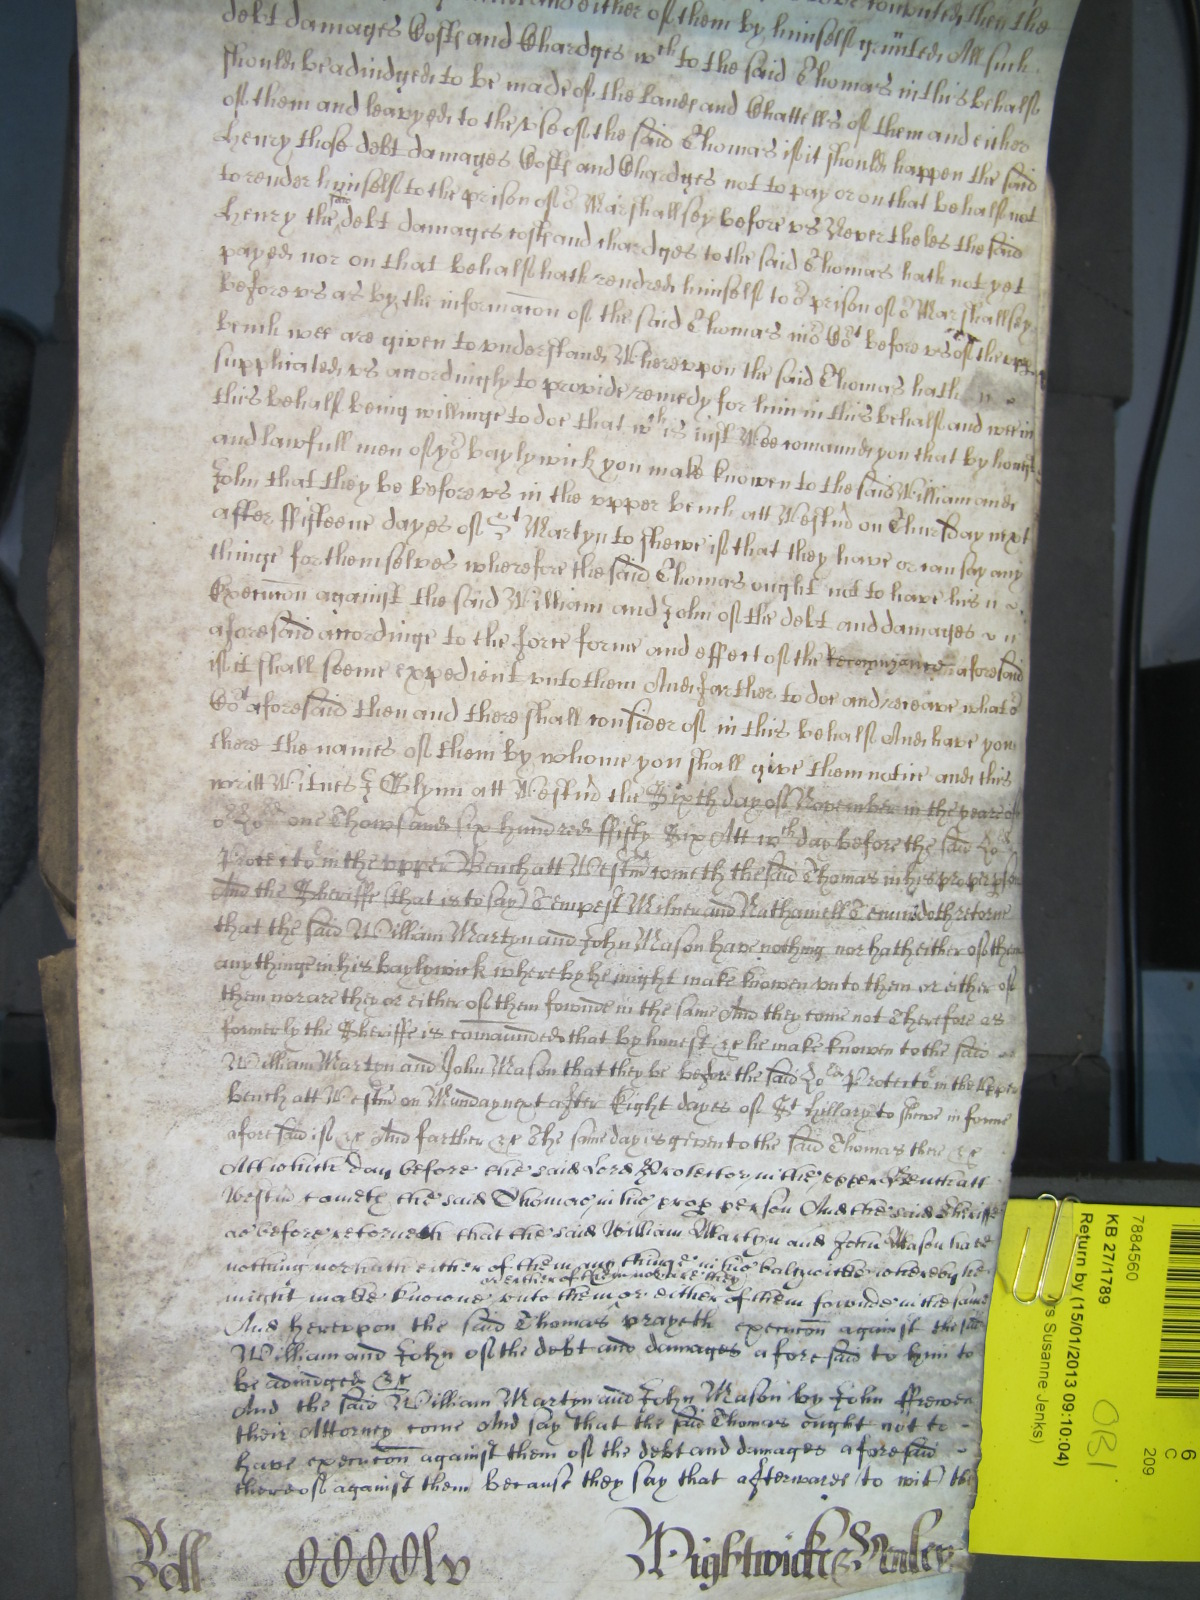 and either of them by himself graunted All such
debt damages Costs and Chardges wch to the said Thomas in this behalf
should be adiudged to be made of the lands and Chattells of them and either
of them and leavyed to the vse of the said Thomas if it should happen the said
Henry those debt damages Costs and Chardges not to pay or on that behalf not
to render himself to the prison of ye Marshallsey before vs Nevertheles the said
Henry the said debt damages costs and chardges to the said Thomas hath not yet
payed nor on that behalf hath rendred himself to ye prison of ye Marshallsey
before vs as by the informacon of the said Thomas in or Cort before vs of the vpper
bench wee are given to vnderstand Wherevpon the said Thomas hath
supplicated vs accordingly to provide remedy for him in this behalf and wee in
this behalf being willinge to doe that wch is iust Wee comaund you that by honest
and lawfull men of yor baylywick you make knowen to the said William and
John that they be before vs in the vpper bench att Westmr on Thursday next
after ffifteene dayes of St Martyn to shewe if that they have or can say any
thinge for themselves wherefore the said Thomas ought not to have his
Execucon against the said William and John of the debt and damages
aforesaid accordinge to the force forme and effect of the Recognizance aforesaid
if it shall seeme expedient vnto them And farther to doe and receave what or
Cort aforesaid then and there shall consider of in this behalf And have you
there the names of them by whome you shall give them notice and this
writt Witnes J Glynn att Westmr the Sixth day of November in the yeare of
or Lord one Thowsand six hundred ffifty Six Att wch day before the said Lord
Protector in the vpper Bench att Westmr cometh the said Thomas in his proper pson
And the Sheriffe (that is to say) Tempest Milner and Nathaniell Temms doth retorne
that the said William Martyn and John Mason have nothing nor hath either of them
any thinge in his baylywick whereby he might make knowen vnto them or either of
them nor are they or either of them fownde in the same And they come not Therefore as
formerly the Sheriffe is comaunded that by honest &c he make knowen to the said
William Martyn and John Mason that they be before the said Lord Protector in the Vpper
bench att Westmr on Munday next after Eight dayes of St Hillary to shewe in forme
aforesaid if &c And farther &c The same day is given to the said Thomas there &c
Att which day before the said Lord Protector in the vpper Bench att
Westmr cometh the said Thomas in his prop person And the said Sheriffe
as before retorneth that the said William Martyn and John Mason have
nothing nor hath either of them any thinge in his balywicke whereby he
or either of them nor are they
might make knowne vnto them or either of them fownde in the same
And herevpon the said Thomas prayeth execucon against the said
William and John of the debt and damages aforesaid to him to
be adiudged &c
And the said William Martyn and John Mason by John ffrewen
their Attorney come And say that the said Thomas ought not to
have execucon against them of the debt and damages aforesaid
thereof against them because they say that afterwards (to wit) the
Roll CCCClv Wightwicke &
7884560
KB 27/1789
Return by (15/01/2013 09:10:04)
s Susanne Jenks)
OBI
6
C
209